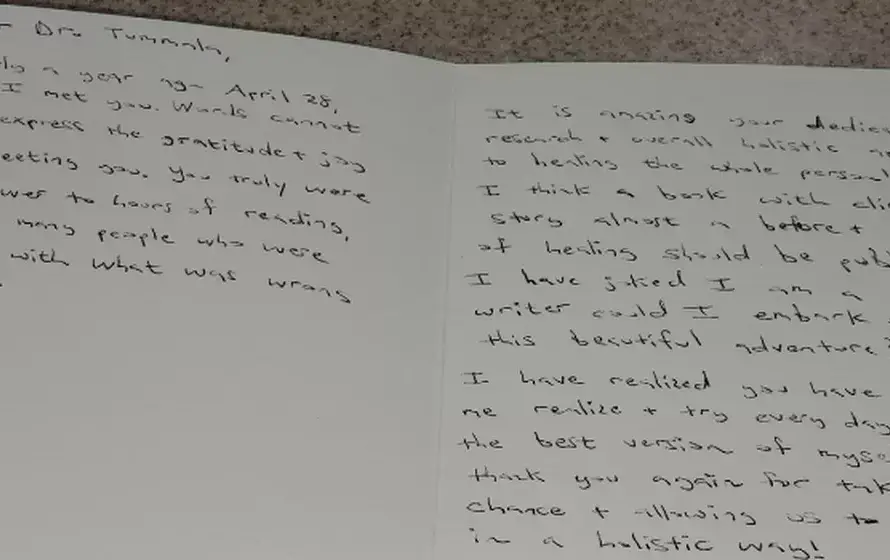 Dr. Tummala,
a year ago April 28,
I met you. Words cannot
express the gratitude + joy
eeting you. You truly were
wer to hours of reading,
many people who were
with what was wrong
It is amazing your dedic
research + overall holistic
to healing the whole person
I think a book with cli
story almost a before +
of healing should be publ
I have joked I am a
writer could I embark
this beautiful adventure?
I have realized you have
me realize + try every day
the best version of myse
thank you again for tak
chance + allowing us to
in a holistic way!